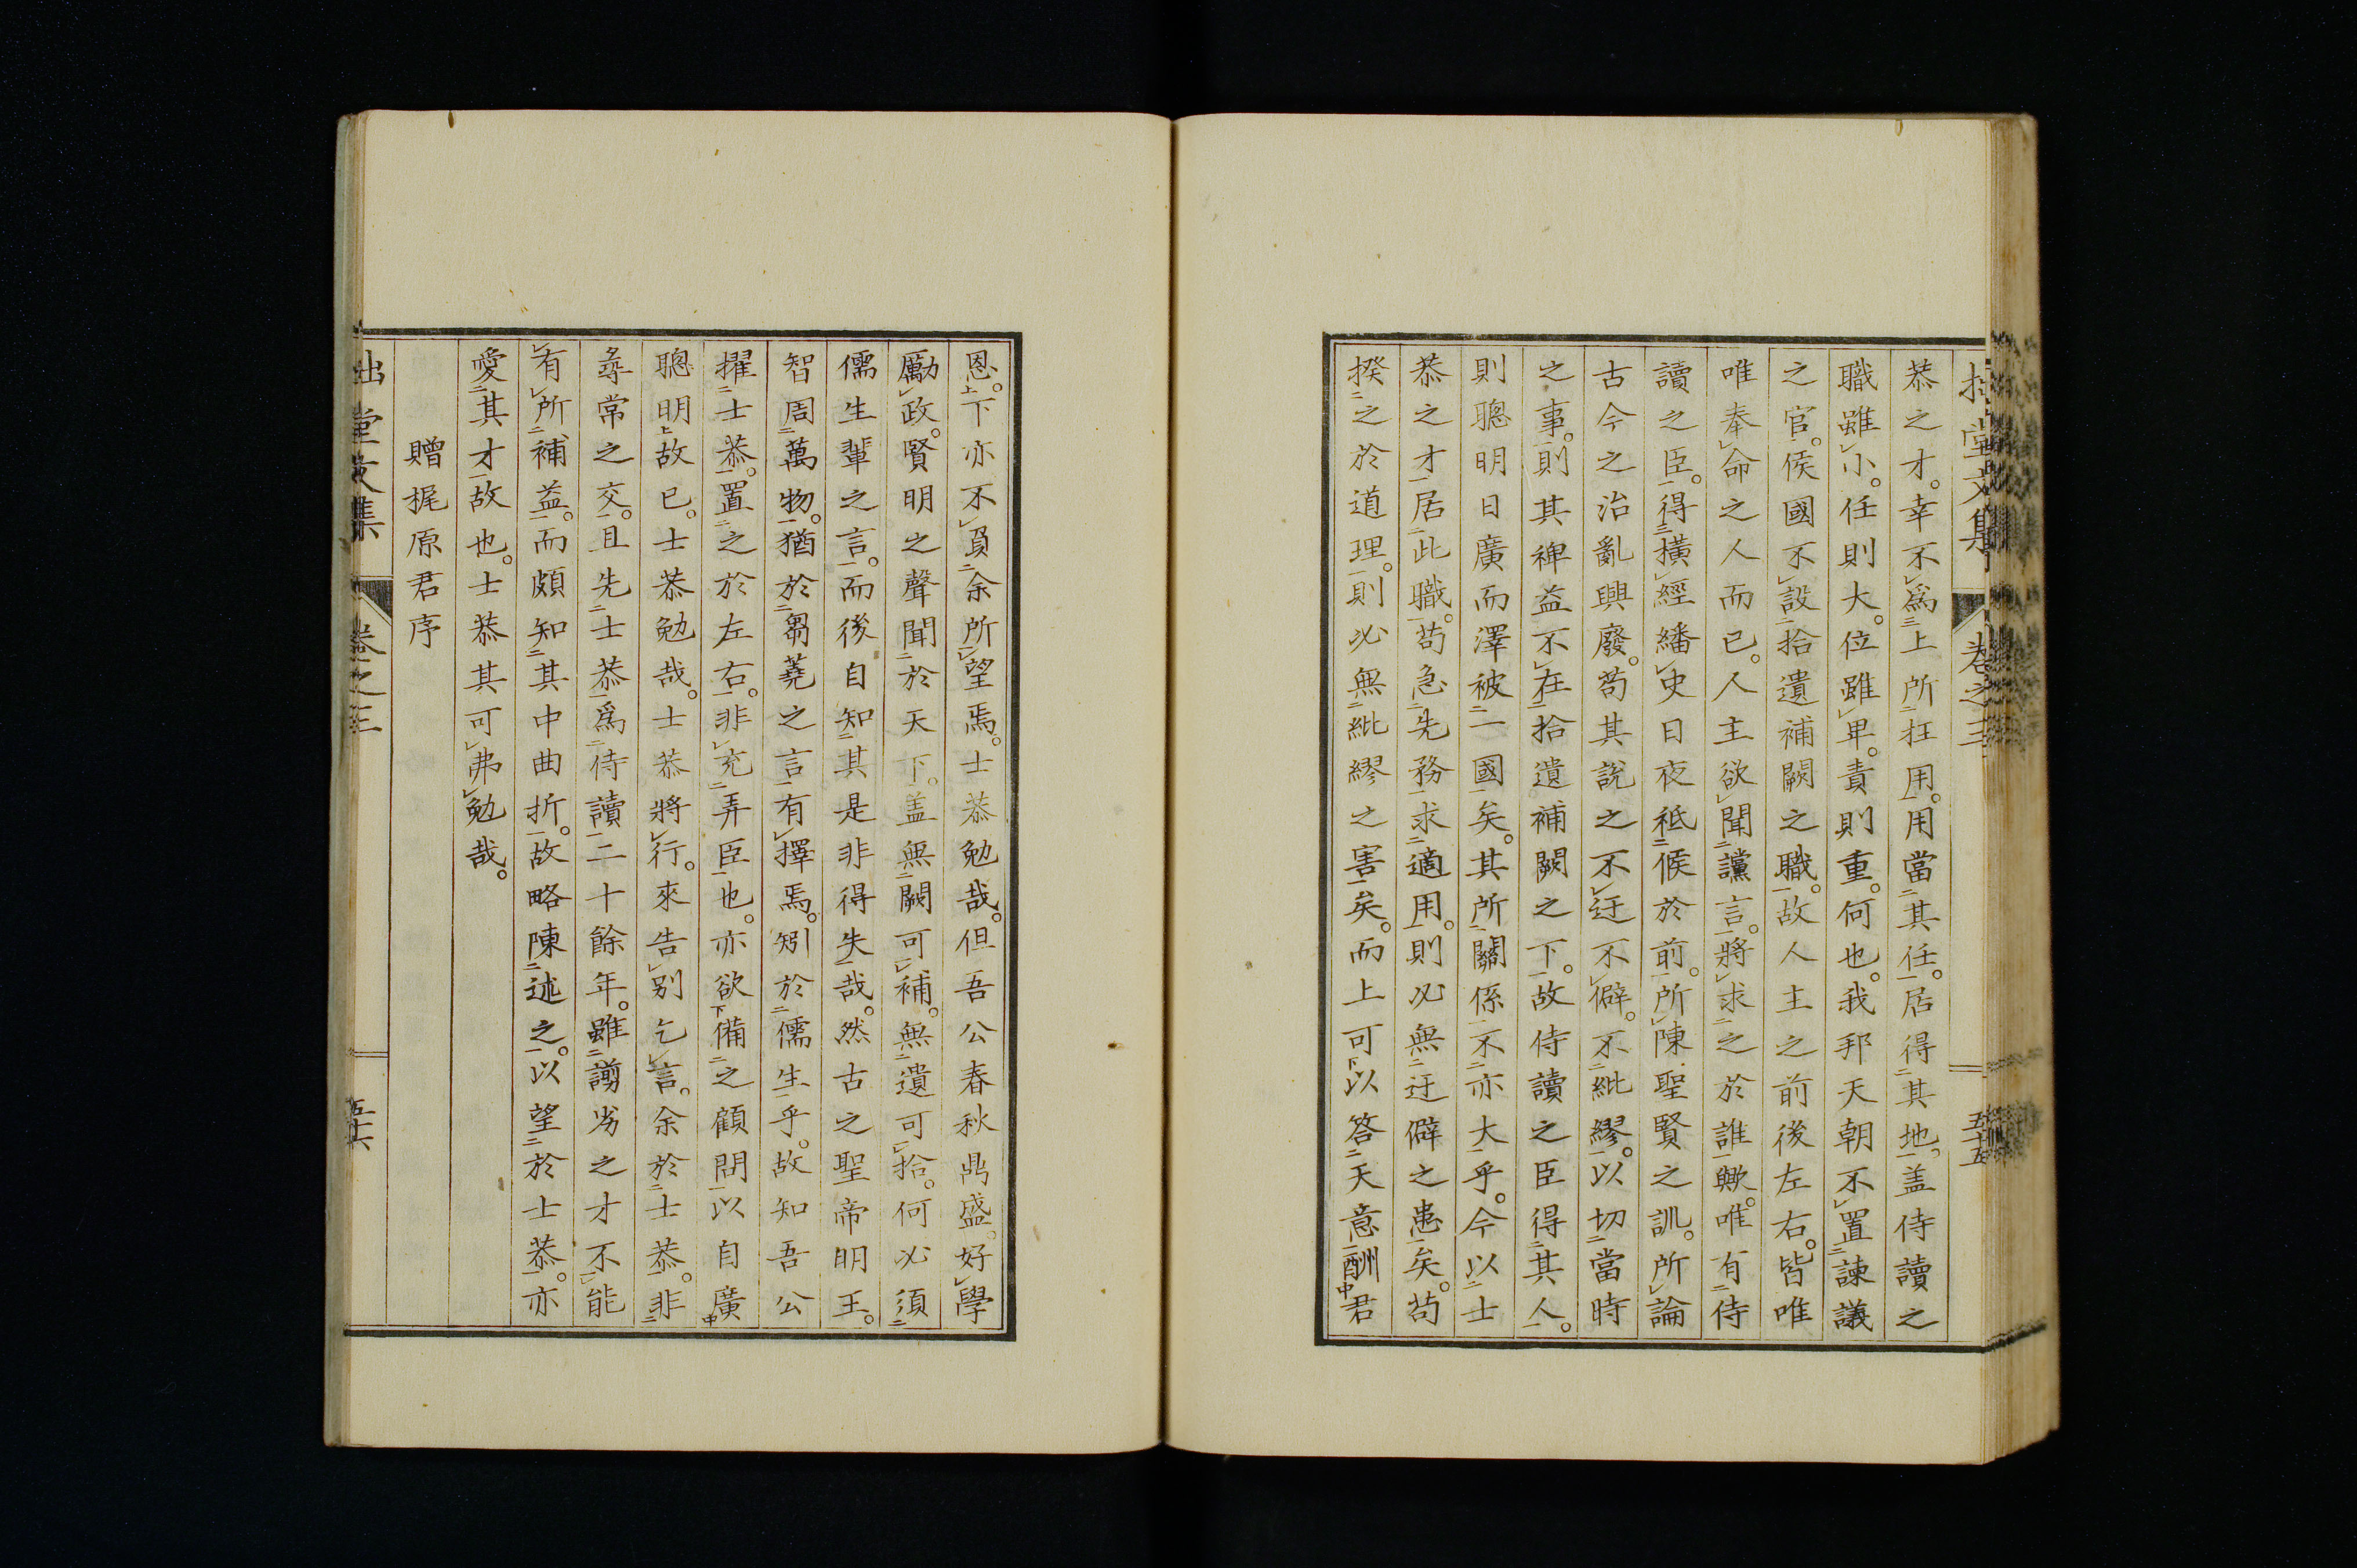 拙堂文集 卷之三 五十五
恭之才。幸不爲上所枉用。用當其任。居得其地。盖侍讀之
職雖小。任則大。位雖卑。責則重。何也。我邦天朝不置諫議
之官。侯國不設拾遺補闕之職。故人主之前後左右。皆唯
唯奉命之人而已。人主欲聞讜言。將求之於誰歟。唯有侍
讀之臣。得橫經繙史日夜祗候於前。所陳聖賢之訓。所論
古今之治亂興廢。苟其說之不迂不僻。不紕繆。以切當時
之事。則其裨益不在拾遺補闕之下。故侍讀之臣得其人。
則聰明日廣而澤被一國矣。其所關係不亦大乎。今以士
恭之才居此職。苟急先務求適用。則必無迂僻之患矣。苟
揆之於道理。則必無紕繆之害矣。而上可以答天意酬君
恩。下亦不負余所望焉。士恭勉哉。但吾公春秋鼎盛。好學
勵政。賢明之聲聞於天下。盖無闕可補。無遺可拾。何必須
儒生輩之言。而後自知其是非得失哉。然古之聖帝明王。
智周萬物。猶於芻蕘之言有擇焉。矧於儒生乎。故知吾公
擢士恭。置之於左右。非充弄臣也。亦欲備之顧問以自廣
聰明故已。士恭勉哉。士恭將行。來告別乞言。余於士恭。非
尋常之交。且先士恭爲侍讀二十餘年。雖謭劣之才不能
有所補益。而頗知其中曲折。故略陳述之。以望於士恭。亦
愛其才故也。士恭其可弗勉哉。
贈梶原君序
拙堂文集 卷之三 五十六